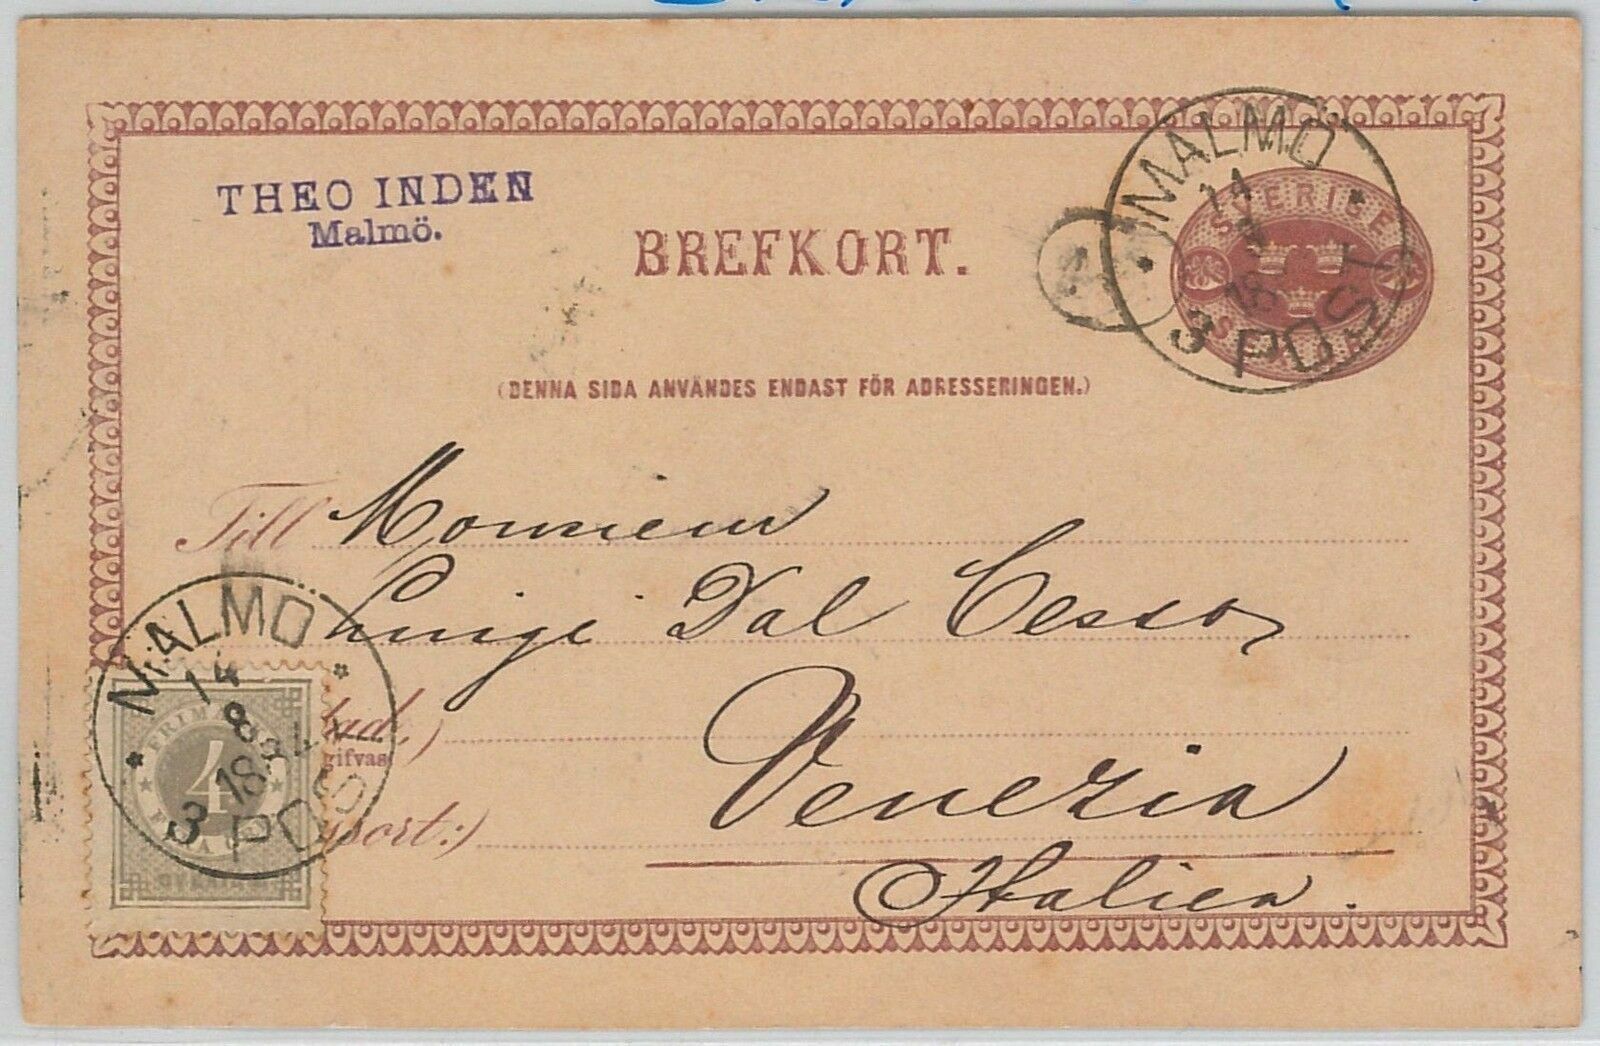 THEO INDEN
Malmö.
BREFKORT.
MALMÖ
14
3 POST
SVERIGE
(DENNA SIDA ANVÄNDES ENDAST FÖR ADRESSERINGEN.)
Till Monsieur
Luigi Dal Cesso
Venezia
Italien.
MALMÖ
14
8
3 POST
FRIMÄRKE
4
gifvas